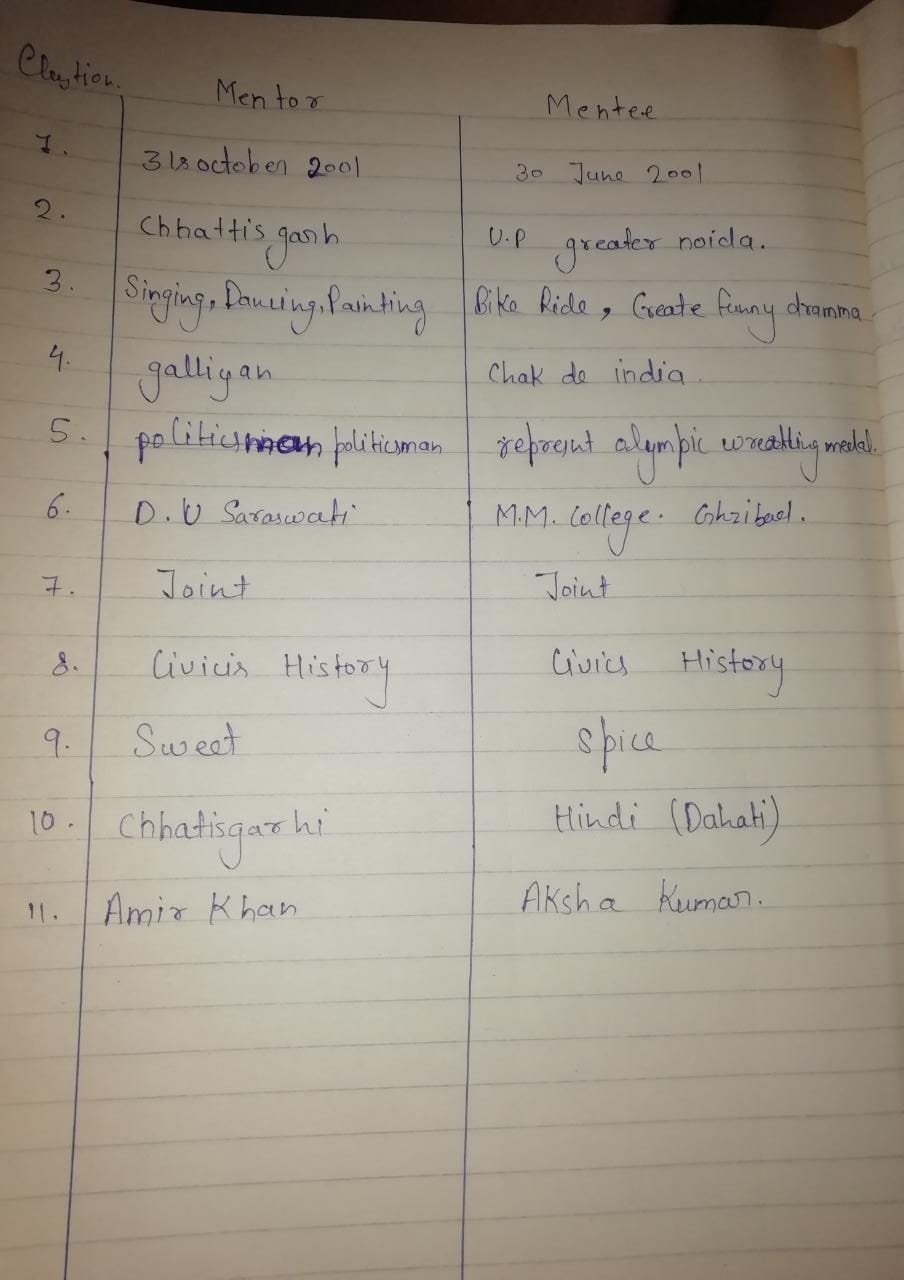 Clustion. Mentor Mentee
1. 31st october 2001 30 June 2001
2. Chhattisgarh U.P greater noida.
3. Singing, Dancing, Painting Bike Ride, Create funny dramma
4. galliyan Chak de india.
5. politics politicsman represnt olympic wrestling medal.
6. D.U Saraswati M.M. College. Ghzibad.
7. Joint Joint
8. Civicis History Civics History
9. Sweet Spice
10. Chhatisgarhi Hindi (Dahati)
11. Amir Khan Aksha Kumar.